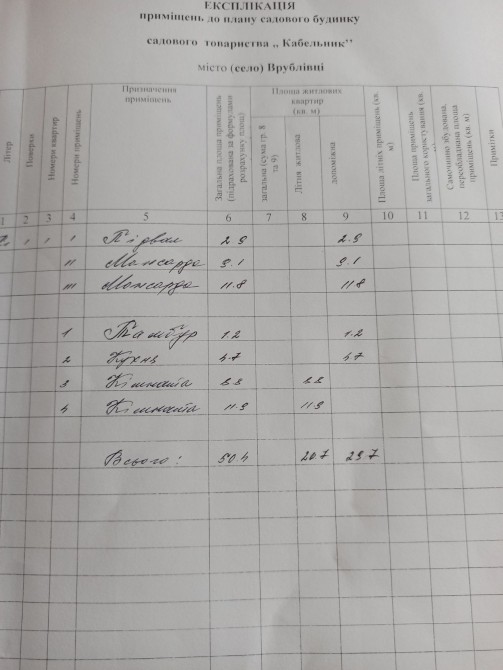 ЕКСПЛІКАЦІЯ
приміщень до плану садового будинку
садового товариства ,, Кабельник''
місто (село) Врублівці
Літер
Поверхи
Номери квартир
Номери приміщень
Призначення приміщень
Загальна площа приміщень (підрахована за формулами розрахунку площ)
Площа житлових квартир (кв. м)
загальна (сума гр. 8 та 9)
Літня житлова
допоміжна
Площа літніх приміщень (кв. м)
Площа приміщень загального користування (кв.
Самочинно збудована, переобладнана площа приміщень (кв. м)
Примітки
1 2 3 4 5 6 7 8 9 10 11 12 13
1 1 I Підвал 2.9 2.9
II Мансарда 9.1 9.1
III Мансарда 11.8 11.8
1 Тамбур 1.2 1.2
2 Кухня 4.7 4.7
3 Кімната 8.8 8.8
4 Кімната 11.9 11.9
Всього: 50.4 20.7 29.7